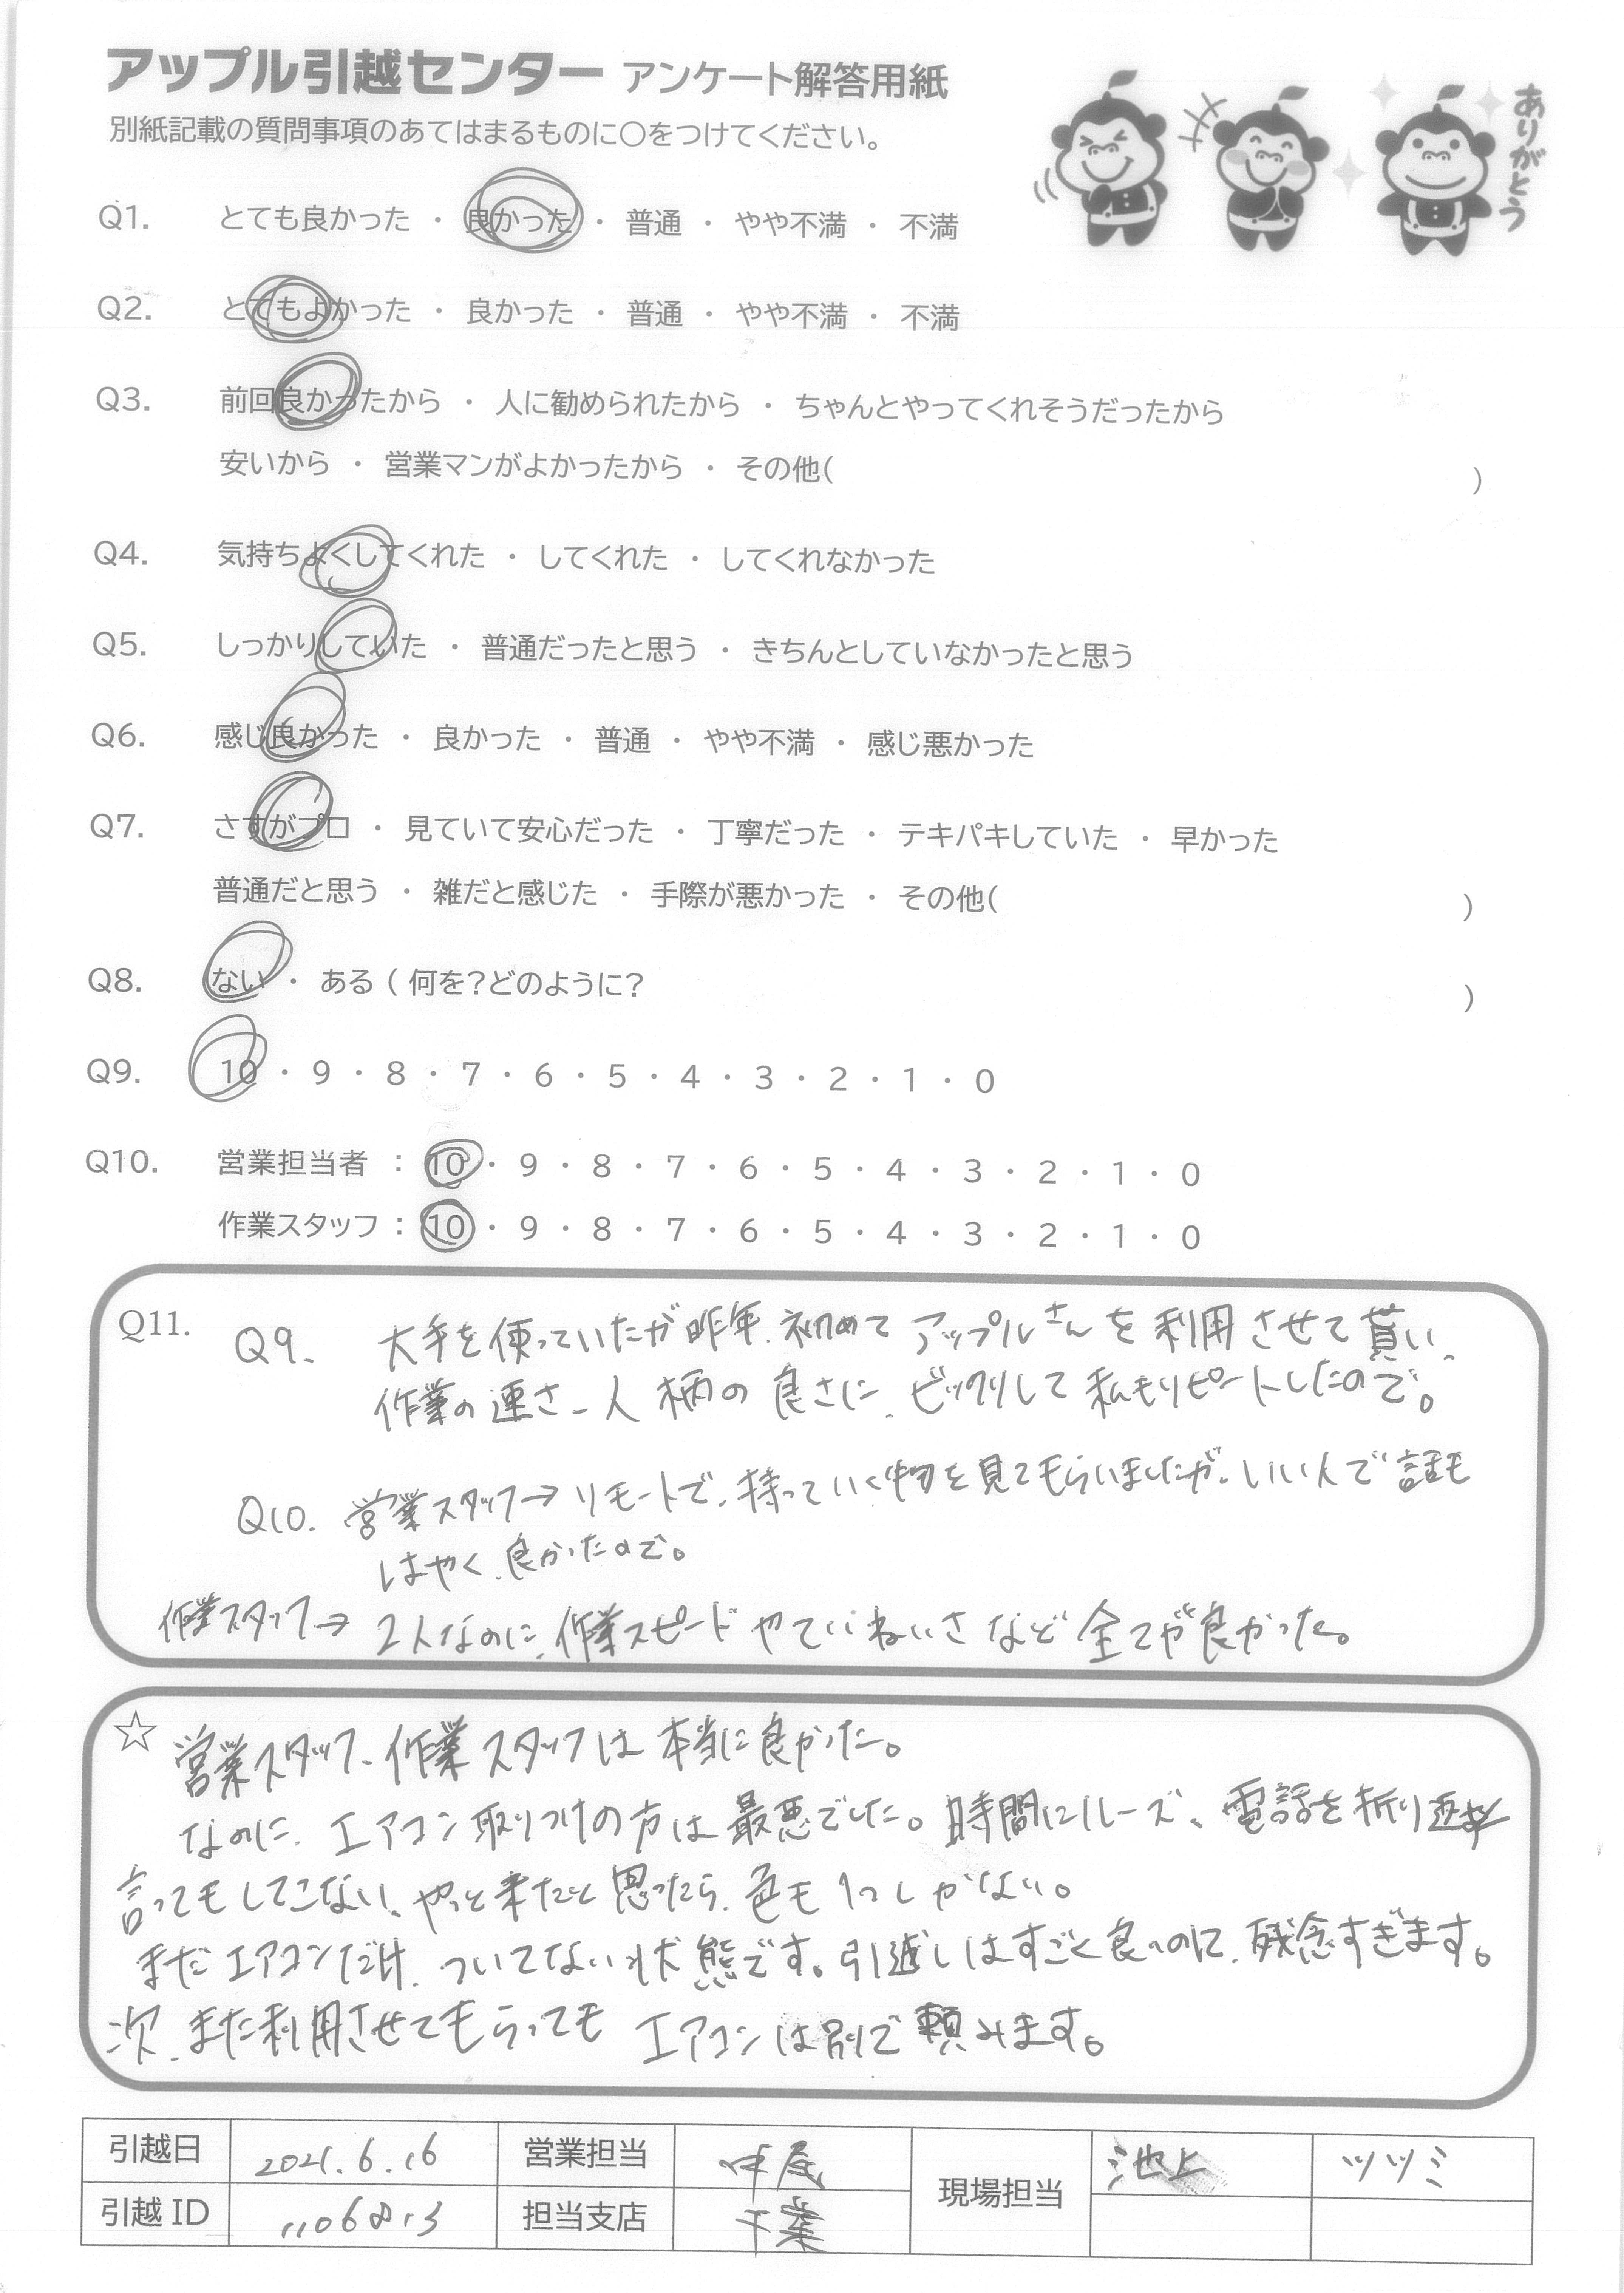 アップル引越センター アンケート解答用紙
別紙記載の質問事項のあてはまるものに〇をつけてください。
ありがとう
Q1. とても良かった ・ 良かった ・ 普通 ・ やや不満 ・ 不満
Q2. とてもよかった ・ 良かった ・ 普通 ・ やや不満 ・ 不満
Q3. 前回良かったから ・ 人に勧められたから ・ ちゃんとやってくれそうだったから
安いから ・ 営業マンがよかったから ・ その他( )
Q4. 気持ちよくしてくれた ・ してくれた ・ してくれなかった
Q5. しっかりしていた ・ 普通だったと思う ・ きちんとしていなかったと思う
Q6. 感じ良かった ・ 良かった ・ 普通 ・ やや不満 ・ 感じ悪かった
Q7. さすがプロ ・ 見ていて安心だった ・ 丁寧だった ・ テキパキしていた ・ 早かった
普通だと思う ・ 雑だと感じた ・ 手際が悪かった ・ その他( )
Q8. ない ・ ある ( 何を?どのように? )
Q9. 10 ・ 9 ・ 8 ・ 7 ・ 6 ・ 5 ・ 4 ・ 3 ・ 2 ・ 1 ・ 0
Q10. 営業担当者 : 10 ・ 9 ・ 8 ・ 7 ・ 6 ・ 5 ・ 4 ・ 3 ・ 2 ・ 1 ・ 0
作業スタッフ : 10 ・ 9 ・ 8 ・ 7 ・ 6 ・ 5 ・ 4 ・ 3 ・ 2 ・ 1 ・ 0
Q11. Q9、 大手を使っていたが昨年、初めて アップルさんを利用させて貰い、
作業の速さ、人柄の良さに、ビックリして私もリピートしたので。
Q10. 営業スタッフ→ リモートで、持っていく物を見てもらいましたが、いい人で話も
はやく、良かったので。
作業スタッフ→ 2人なのに、作業スピードやていねいさなど全てが良かった。
☆ 営業スタッフ、作業スタッフは本当に良かった。
なのに、エアコン取りつけの方は最悪でした。時間にルーズ、電話を折り返し
言ってもしてこない、やっと来たと思ったら、色も1つしかない。
まだエアコンだけ、ついてない状態です。引越しはすごく良いのに、残念すぎます。
次、また利用させてもらっても エアコンは別で頼みます。
引越日 2021.6.16 営業担当 中尾 現場担当 池上 ツツミ
引越 ID 1106813 担当支店 千葉